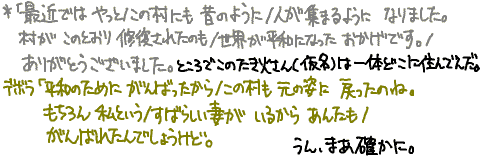 *「最近では やっと/この村にも 昔のように/人が集まるように なりました。
村が このとおり 修復されたのも/世界が平和になった おかげです。/
ありがとうございました。ところでこのたき火さん(仮名)は一体どこに住んでんだ。
デボラ「平和のために がんばったから/この村も 元の姿に 戻ったのね。
もちろん 私という/すばらしい妻が いるから あんたも/
がんばれたんでしょうけど。
うん、まあ確かに。